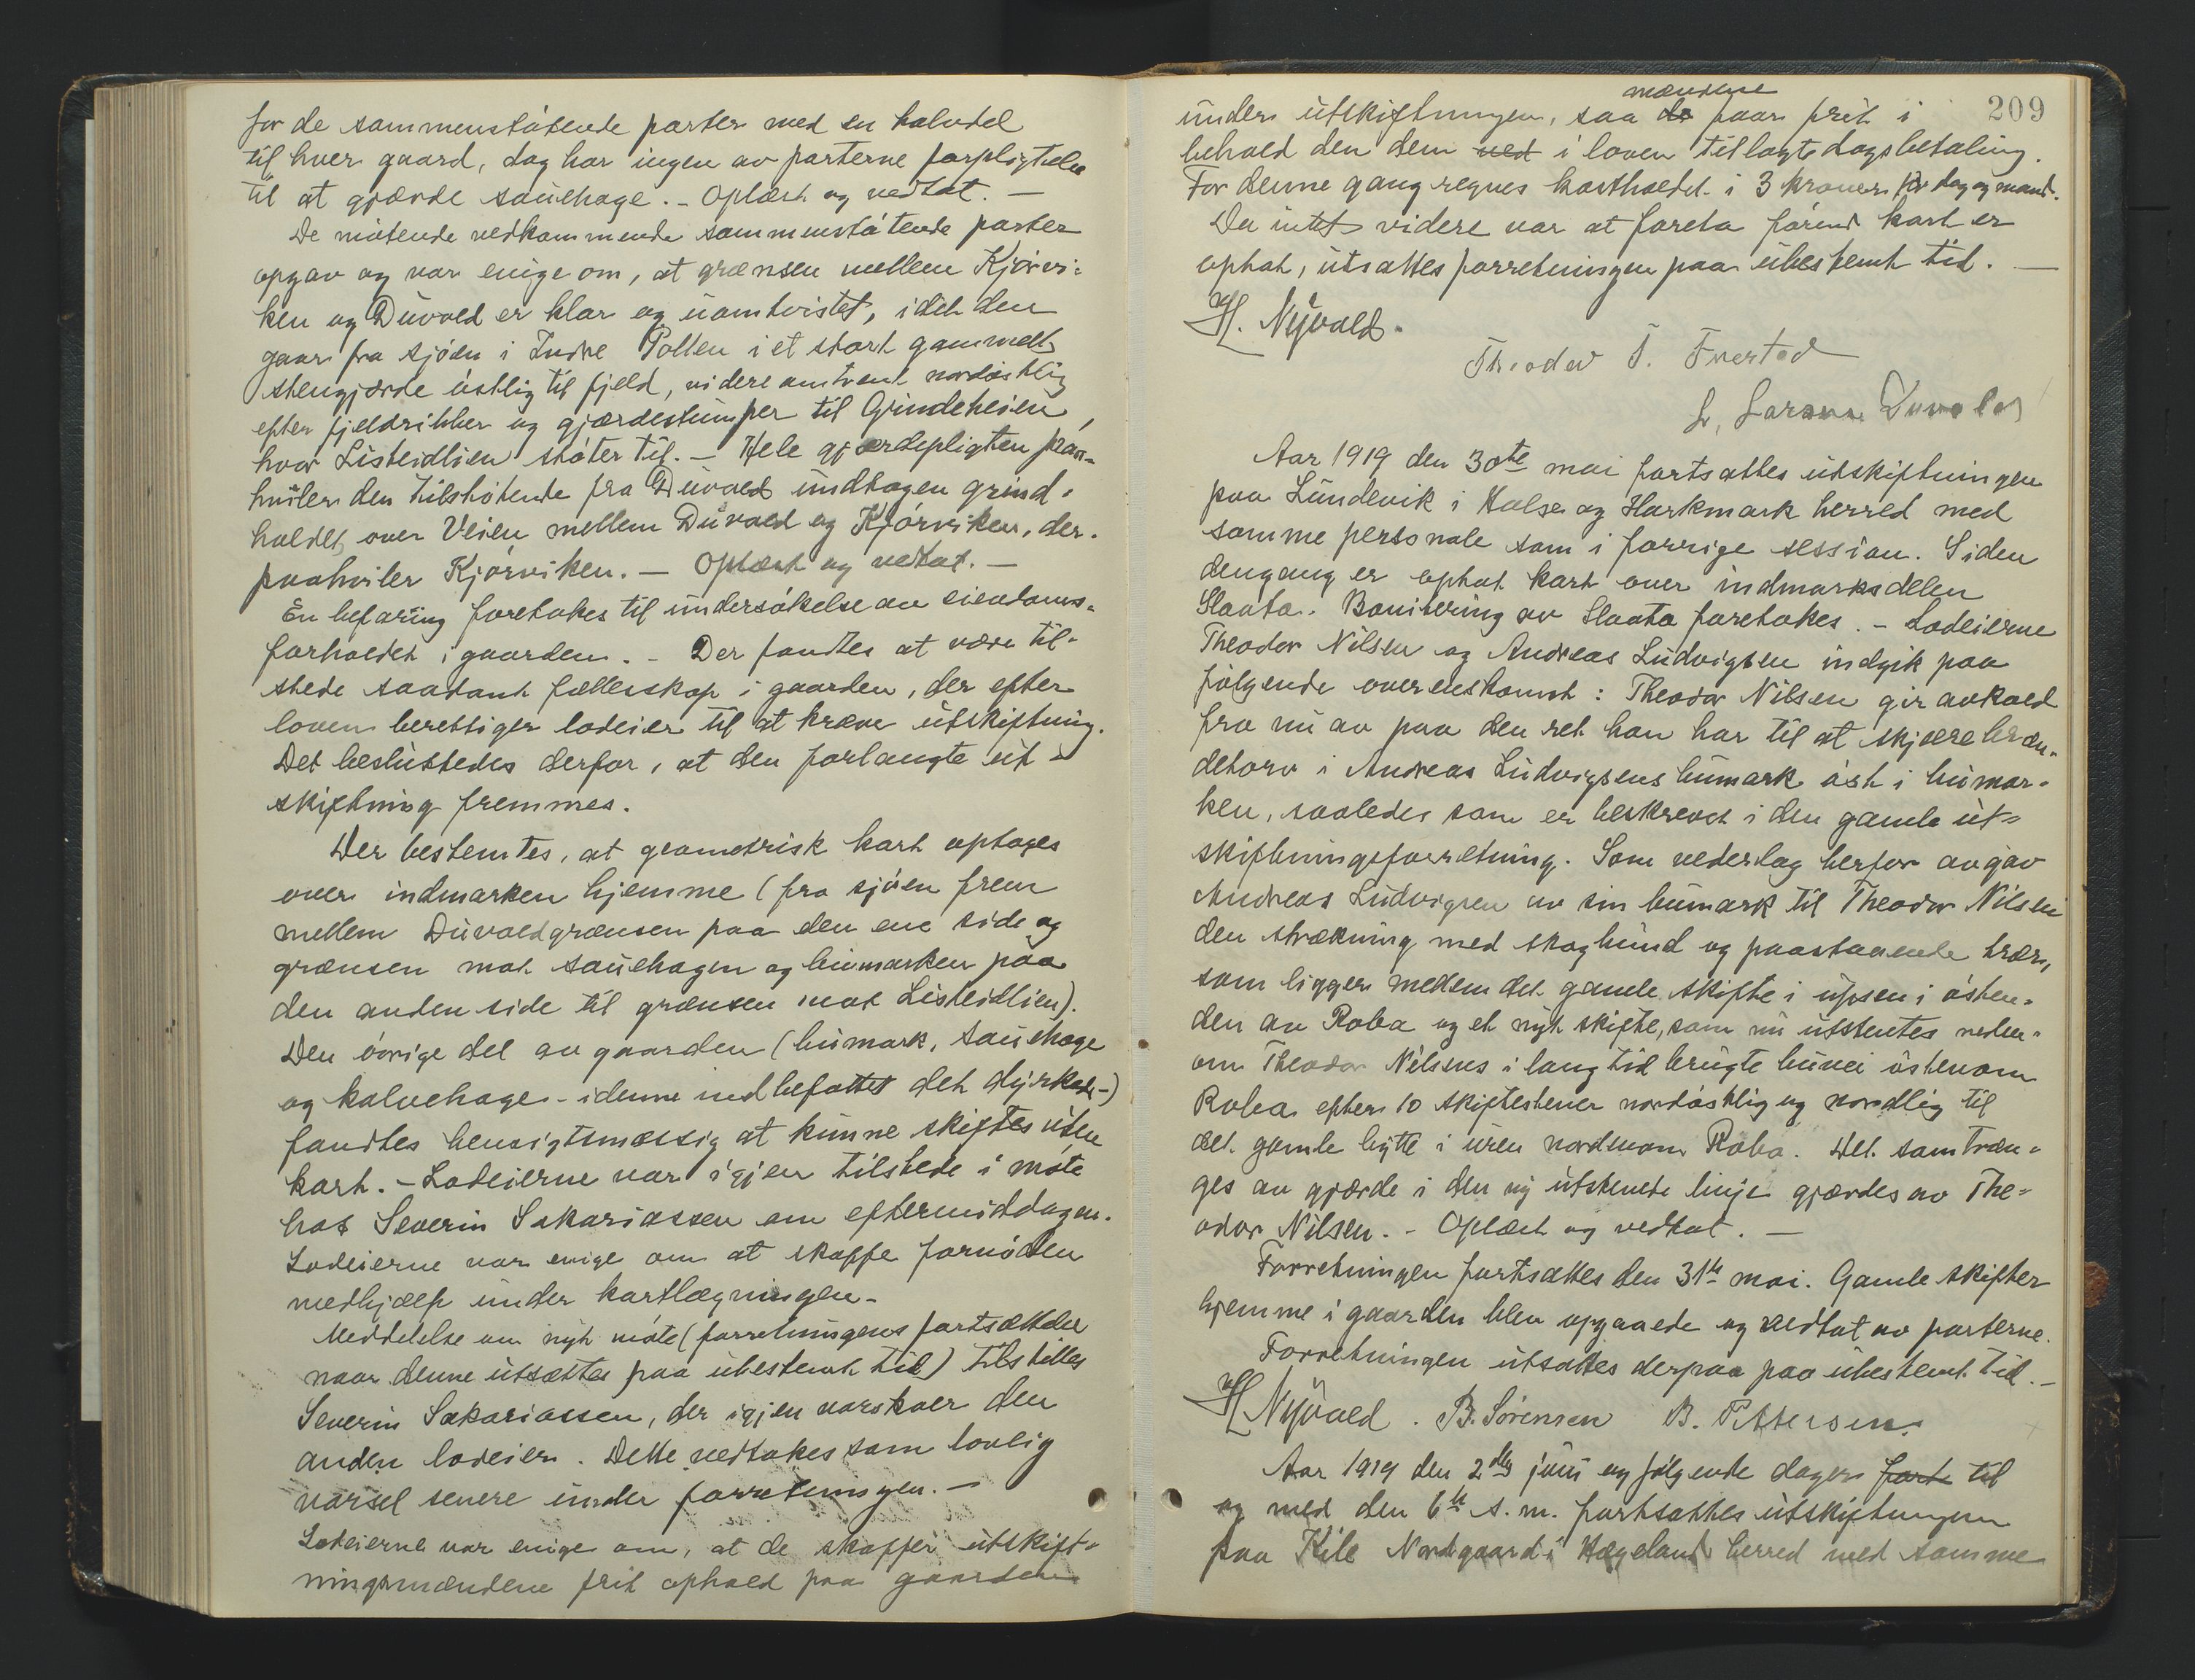 for de sammenstøtende parter med en halvdel
til hver gaard, dog har ingen av parterne forpligtelse
til at gjærde sauehage. - Oplæst og vedtat. -
De møtende vedkommende sammenstøtende parter
opgav og var enige om, at grænsen mellem Kjørvi-
ken og Duvold er klar og uomtvistet, idet den
gaar fra sjøen i Indre Pollen i et stort gammelt
stengjærde østlig til fjeld, videre omtrent nordøstlig
efter fjeldribber og gjærdestumper til Grindeheien,
hvor Listeidlien støter til. - Hele gjærdepligten paa-
hviler den tilstøtende fra Duvold undtagen grind-
holdet over Veien mellem Duvold og Kjørviken, der
paahviler Kjørviken. - Oplæst og vedtat. -
En befaring foretokes til undersøkelse av eiendoms-
forholdet i gaarden. - Der fandtes at være til-
stede saadant fællesskap i gaarden, der efter
loven berettiger lodeier til at kræve utskiftning.
Det besluttedes derfor, at den forlangte ut-
skiftning fremmes.
Der bestemtes, at geometrisk kart optages
over indmarken hjemme (fra sjøen frem
mellem Duvoldgrænsen paa den ene side og
grænsen mot sauehagen og bumarken paa
den anden side til grænsen mot Listeidlien).
Den øvrige del av gaarden (bumark, sauehage
og kalvehage - idenne indbefattet det dyrkede -)
fandtes hensigtsmæssig at kunne skiftes uten
kart. - Lodeierne var igjen tilstede i møte
hos Severin Sakariassen om eftermiddagen.
Lodeierne var enige om at skaffe fornøden
medhjælp under kartlægningen. -
Meddelelse om nyt møte (forretningens fortsættelse
naar denne utsættes paa ubestemt tid) tilstilles
Severin Sakariassen, der igjen varskoer den
anden lodeier. Dette vedtokes som lovlig
varsel senere under forretningen. -
Lodeierne var enige om, at de skaffer utskift-
ningsmændene frit ophold paa gaarden
209
mændene
under utskiftningen, saa de faar frit i
behold den dem ved i loven tillagte dagsbetaling.
For denne gang regnes kostholdet i 3 kroner pr dag og mand.
Da intet videre var at foreta førend kart er
optat, utsattes forretningen paa ubestemt tid. -
H. Nyvold.
Theodor T.
L. Larsen Duvold
Aar 1919 den 30te mai fortsattes utskiftningen
paa Lundevik i Halse og Harkmark herred med
samme personale som i forrige session. Siden
dengang er optat kart over indmarksdelen
Slaata. Bonitering av Slaata foretokes. - Lodeierne
Theodor Nilsen og Andreas Ludvigsen indgik paa
følgende overenskomst: Theodor Nilsen gir avkald
fra nu av paa den ret han har til at skjære bræn-
detorv i Andreas Ludvigsens bumark øst i bumar-
ken, saaledes som er beskrevet i den gamle ut-
skiftningsforretning. Som vederlag herfor avgav
Andreas Ludvigsen av sin bumark til Theodor Nilsen
den strækning med skogbund og paastaaende trær,
som ligger mellem det gamle skifte i upsen i østen-
den av Roba og et nyt skifte, som nu utstentes neden-
om Theodor Nilsens i lang tid brugte buvei østenom
Roba efter 10 skiftestener nordøstlig og nordlig til
det gamle bytte i uren nordenom Roba. Det som træn-
ges av gjærde i den ny utstenede linje gjærdes av The-
odor Nilsen. - Oplæst og vedtat. -
Forretningen fortsattes den 31te mai. Gamle skifter
hjemme i gaarden blev opgaaede og vedtat av parterne.
Forretningen utsattes derpaa paa ubestemt tid. -
H Nyvold. B. Sørensen B. Pettersen.
Aar 1919 den 2den juni og følgende dager forts til
og med den 6te s. m. fortsattes utskiftningen
paa Kile Nordgaard i Hægeland herred med samme